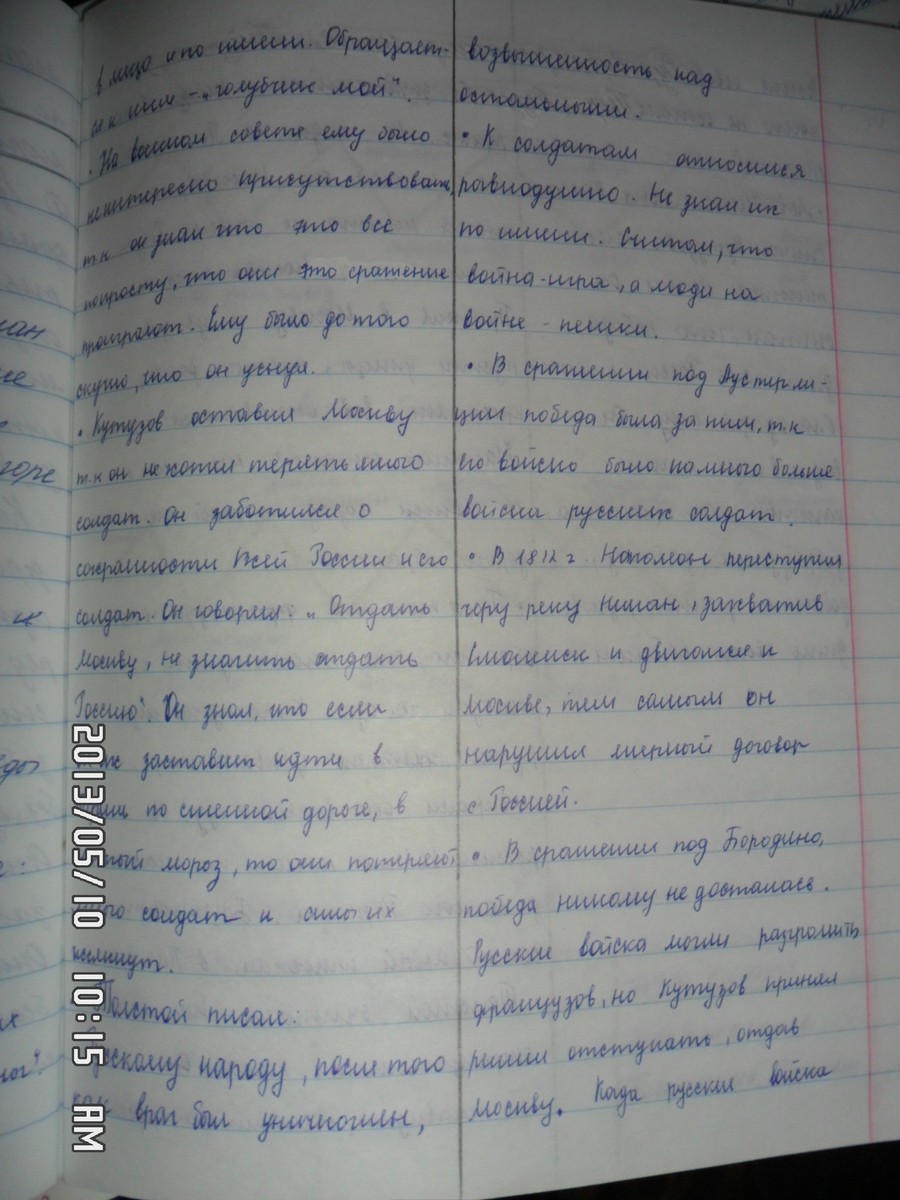 в лицо и по имени. Обращает-
ся к ним - „голубчик мой".
. На военном совете ему было
неинтересно присутствовать,
т.к он знал что это все
попросту, что они это сражение
проиграют. Ему было до того
скучно, что он уснул.
• Кутузов оставил Москву
т.к он не хотел терять много
солдат. Он заботился о
сохранности всей России и его
солдат. Он говорил: „Отдать
Москву, не значить отдать
Россию". Он знал, что если
заставит идти в
по снежной дороге, в
мороз, то они потеряют
солдат и силы их
иссякнут.
Толстой писал:
Русскому народу, после того
как враг был уничтожен,
возвышенность над
остальными.
• К солдатам относился
равнодушно. Не знал их
по имени. Считал, что
война-игра, а люди на
войне - пешки.
• В сражении под Аустерли-
цем победа была за ним, т.к
его войско было намного больше
войска русских солдат.
• В 1812 г. Наполеон переступил
черу реку Неман, захватив
Смоленск и двигался к
Москве, тем самым он
нарушил мирный договор
с Россией.
• В сражении под Бородино,
победа никому не досталась.
Русские войска могли разгромить
французов, но Кутузов принял
решии отступать, отдав
Москву. Когда русские войска
2013/05/10 10:15 AM